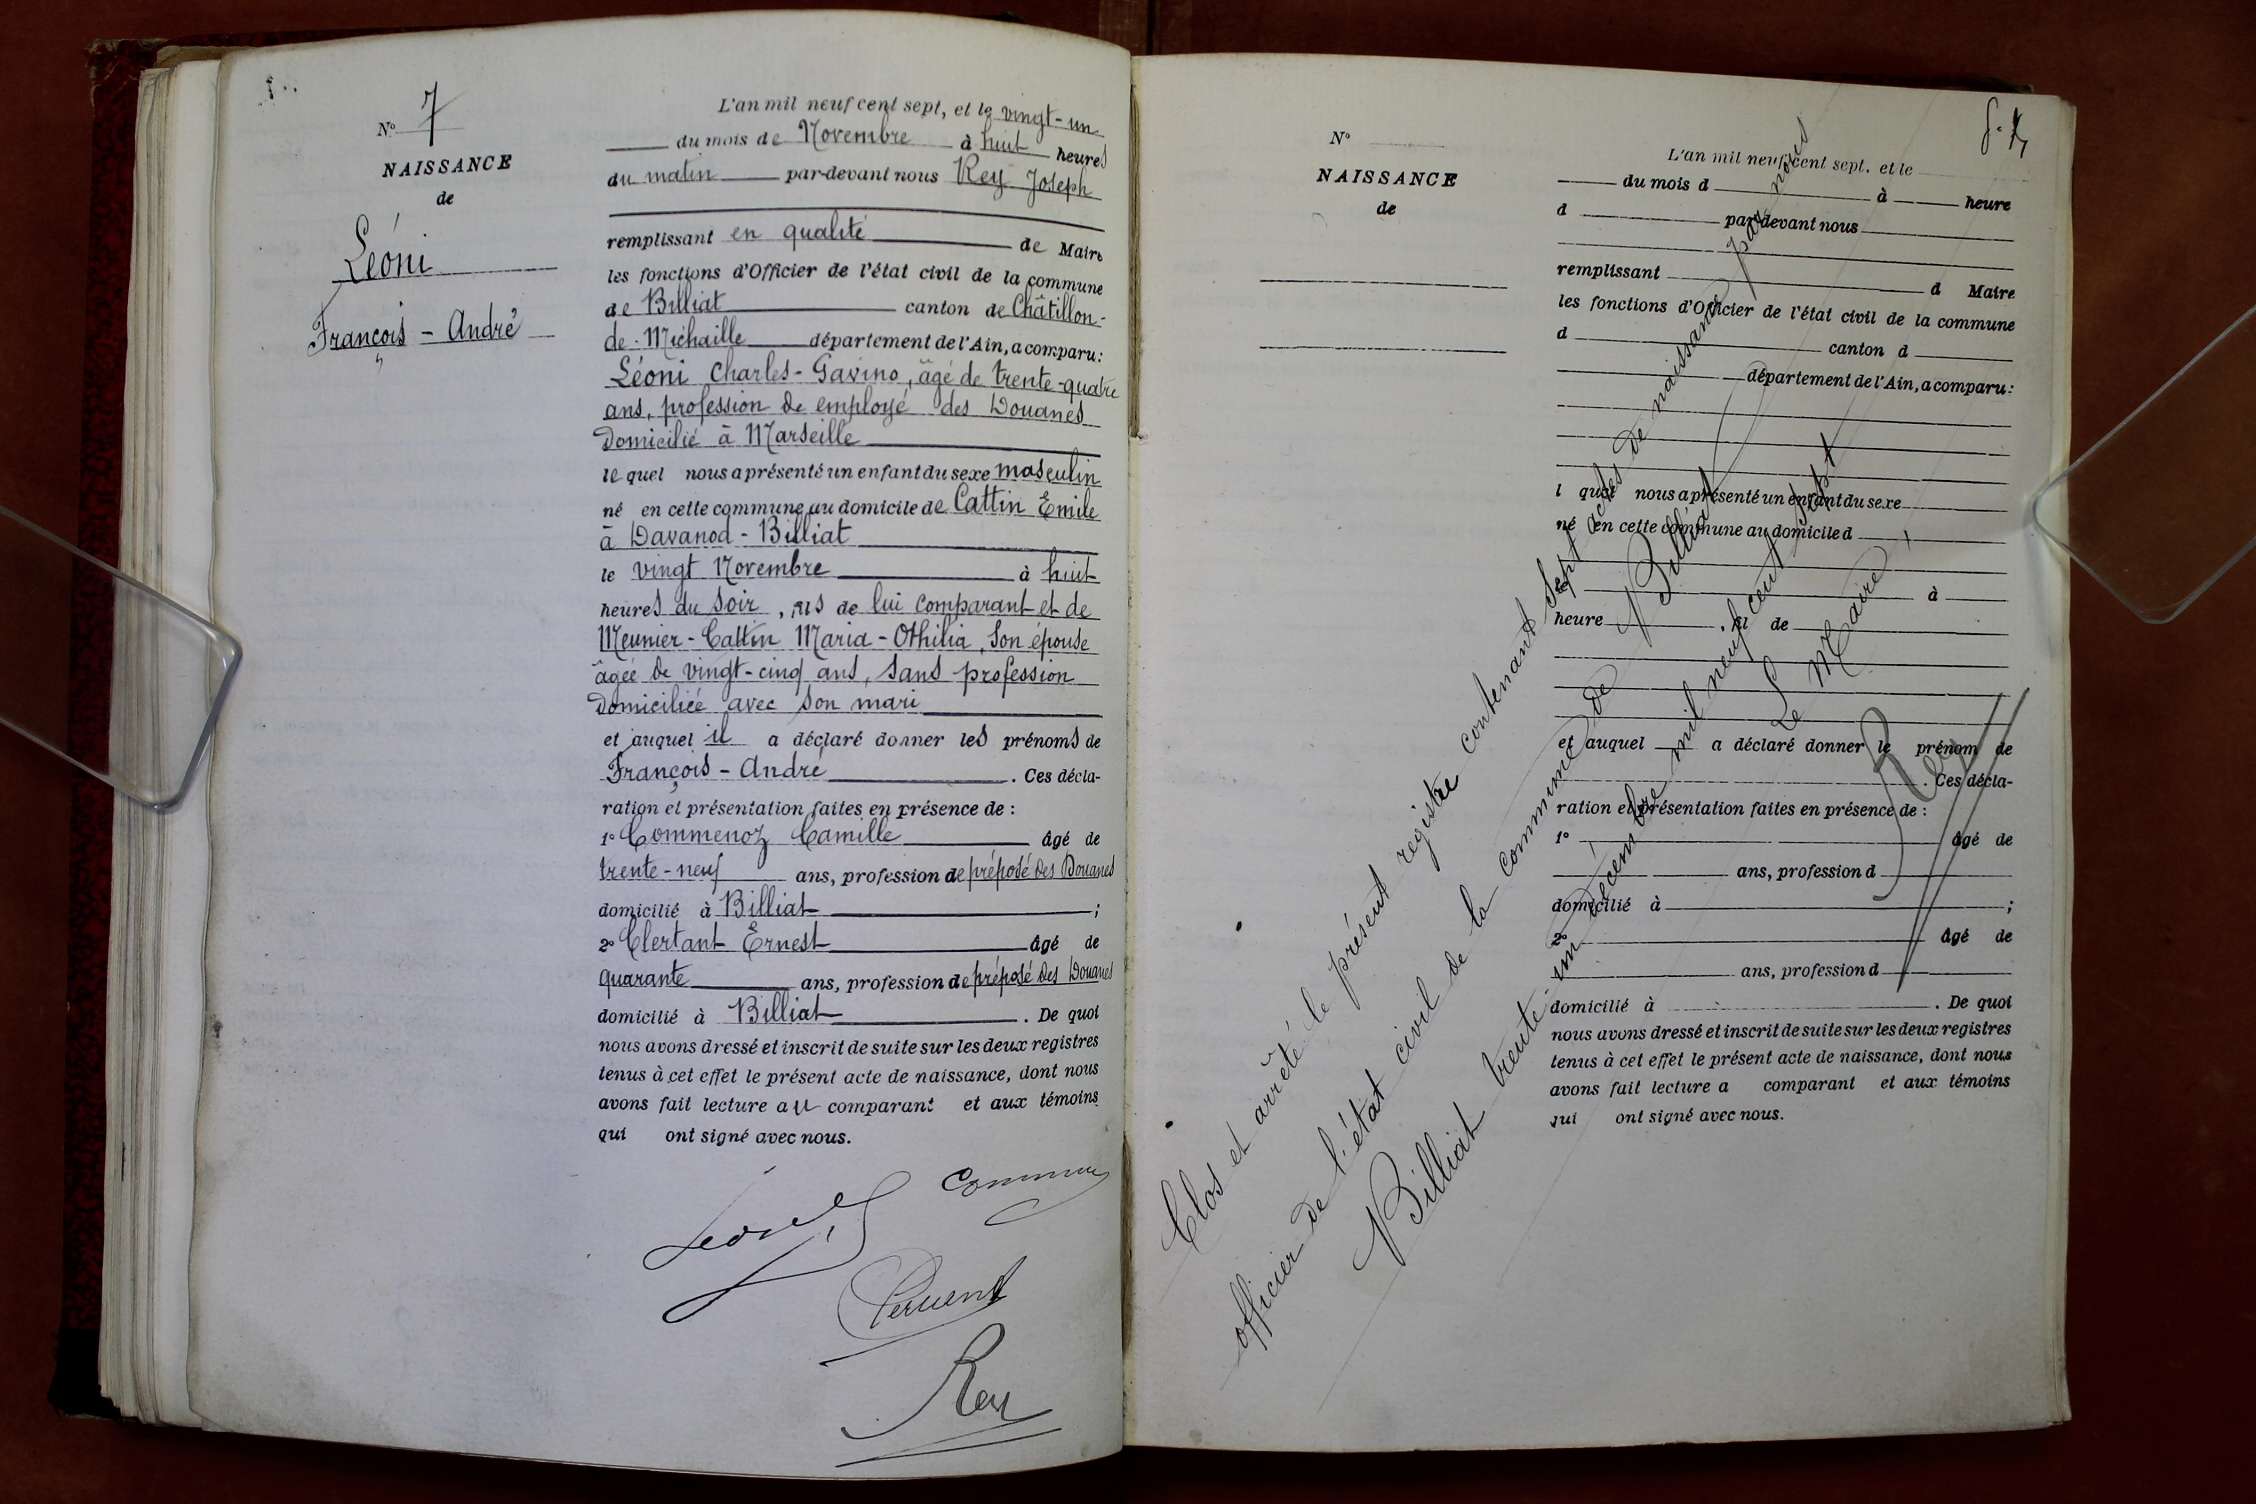 N° 7
NAISSANCE
de
Léoni
François - André
L'an mil neuf cent sept, et le vingt-un
du mois de Novembre à huit heures
du matin par-devant nous Rey Joseph
remplissant en qualité de Maire
les fonctions d'Officier de l'état civil de la commune
de Billiat canton de Châtillon-
de-Michaille département de l'Ain, a comparu:
Léoni Charles-Gavino, âgé de trente-quatre
ans, profession de employé des Douanes
domicilié à Marseille
le quel nous a présenté un enfant du sexe masculin
né en cette commune au domicile de Cattin Emile
à Davanod - Billiat
le vingt Novembre à huit
heures du soir, fils de lui comparant et de
Meunier-Cattin Maria-Othilia, son épouse
âgée de vingt-cinq ans, sans profession
domiciliée avec son mari
et auquel il a déclaré donner les prénoms de
François - André. Ces décla-
ration et présentation faites en présence de:
1° Commenoz Camille âgé de
trente-neuf ans, profession de préposé des Douanes
domicilié à Billiat;
2° Clertant Ernest âgé de
quarante ans, profession de préposé des Douanes
domicilié à Billiat. De quoi
nous avons dressé et inscrit de suite sur les deux registres
tenus à cet effet le présent acte de naissance, dont nous
avons fait lecture au comparant et aux témoins
qui ont signé avec nous.
Rey
N°
NAISSANCE
de
L'an mil neuf cent sept. et le
du mois d à heure
d par-devant nous
remplissant d Maire
les fonctions d'Officier de l'état civil de la commune
d canton d
département de l'Ain, a comparu:
l quel nous a présenté un enfant du sexe
né en cette commune au domicile d
le à
heure , fil de
et auquel a déclaré donner le prénom de
. Ces décla-
ration et présentation faites en présence de:
1° âgé de
ans, profession d
domicilié à ;
2° âgé de
ans, profession d
domicilié à . De quoi
nous avons dressé et inscrit de suite sur les deux registres
tenus à cet effet le présent acte de naissance, dont nous
avons fait lecture a comparant et aux témoins
qui ont signé avec nous.
Clos et arrêté le présent registre contenant sept actes de naissance par nous
officier de l'état civil de la commune de Billiat
Billiat trente-un décembre mil neuf cent sept
Le Maire,
Rey